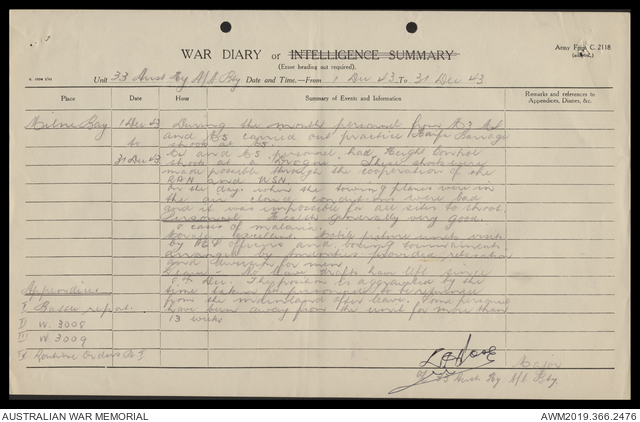 Army Form C. 2118
WAR DIARY or INTELLIGENCE SUMMARY
(Erase heading not required).
Unit 33 Aust Hy A/A Bty Date and Time.—From 1 Dec 43 To 31 Dec 43.
Place Date Hour Summary of Events and Information Remarks and references to Appendices, Diaries, &c.
Milne Bay 1 Dec 43 During the month personnel from
to and carried out practice Barrage
shoots at
31 Dec 43 and personnel had Height Control
shoots at a Drogue. These shoots were
made possible through the cooperation of the
RAN and USN
On the days when the towing planes were in
the air cloud conditions were bad
and it was impossible for all sites to shoot.
Personnel Health generally very good.
cases of malaria.
Morale excellent. Mobile picture units visits
by officers and boxing tournaments
arranged by provided relaxation
and for men.
Leave - No leave drafts have left since
Dec. The position is aggravated by the
time taken for personnel to be returned
Appendices from the mainland after leave. Some
I report. have been away from the unit for more than
II W. 3008 13 weeks
III W 3009
IV Routine Orders
Major
33 Aust Hy A/A Bty.
AUSTRALIAN WAR MEMORIAL
AWM2019.366.2476